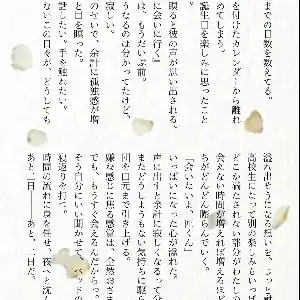 までの日数を数えてる。
を付けたカレンダーから離れ
めてしまう。
誕生日を楽しみに思ったこと
瞑ると彼の声が思い出される。
に会いに行く」
は、もうだいぶ前。
うなるのは分かってたけど、
寂しい。
のせいで、余計に孤独感が増
と目を瞑った。
話したい。手を触れたい。
ないこの日々が、どうしても
溢れ出そうになる想いを、じっと耐
高校生になって別の楽しみもいっぱ
どこか満たされない部分がわたし
会えない時間が増えれば増えるほど
ちがどんどん膨らんでいく。
「会いたいよ、匠くん」
いっぱいになった心が溢れた。
声に出すと余計に寂しくなるって分
またどうしようもない気持ちに駆ら
団を口元まで引き上げる。
嫌な感じに揺れる感覚は、全然おさま
でも、もうすぐ会えるんだからっ
そう自分にいい聞かせて、ベッドの
寝返りを打つ。
時間の流れに身を任せ、夜へと沈ん
あと二日……あと、二日だ。